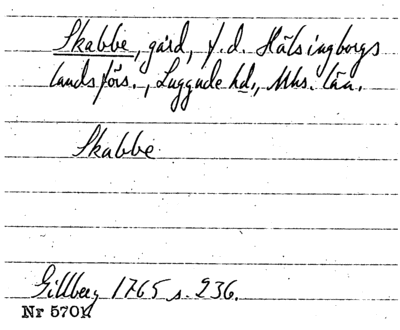 Skabbe, gård, f.d. Hälsingborgs
landsförs., Luggude hd., Mhs. län.
Skabbe
Gillberg 1765 s. 236.
Nr 5701